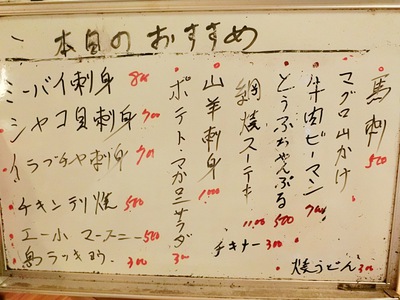 本日のおすすめ
ミーバイ刺身 800
シャコ貝刺身 700
イラブチャ刺身 700
チキンテリ焼 500
エー小 マースニー 500
島ラッキョウ 300
ポテト・マカロニサラダ 300
山羊刺身 1000
網焼ステーキ 1100
とうふちゃんぷる 500
牛肉ピーマン 700
マグロ山かけ
馬刺 500
チキナー 300
焼うどん 300